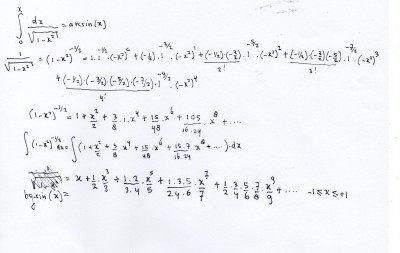 ∫₀ˣ dx/√(1-x²) = arcsin(x)
1/√(1-x²) = (1-x²)^(-1/2) = 1·1·(-x²)⁰ + (-1/2)·1^(-3/2)·(-x²)¹ + (-1/2)·(-3/2)/2!·1^(-5/2)·(-x²)² + (-1/2)(-3/2)(-5/2)/3!·1^(-7/2)·(-x²)³
+ (-1/2)·(-3/2)·(-5/2)·(-7/2)/4!·1^(-9/2)·(-x²)⁴
(1-x²)^(-1/2) = 1 + x²/2 + 3/8·1·x⁴ + 15/48·x⁶ + 105/16·24·x⁸ + ....
∫(1-x²)^(-1/2) dx = ∫(1 + x²/2 + 3/8 x⁴ + 15/48·x⁶ + 15.7/16.24·x⁸ + ...)·dx
= x + 1/2·x³/3 + 1.3/2.4·x⁵/5 + 1.3.5/2.4.6·x⁷/7 + 1/2·3/4·5/6·7/8·x⁹/9 + .... -1≤x≤+1
bgsin(x)=